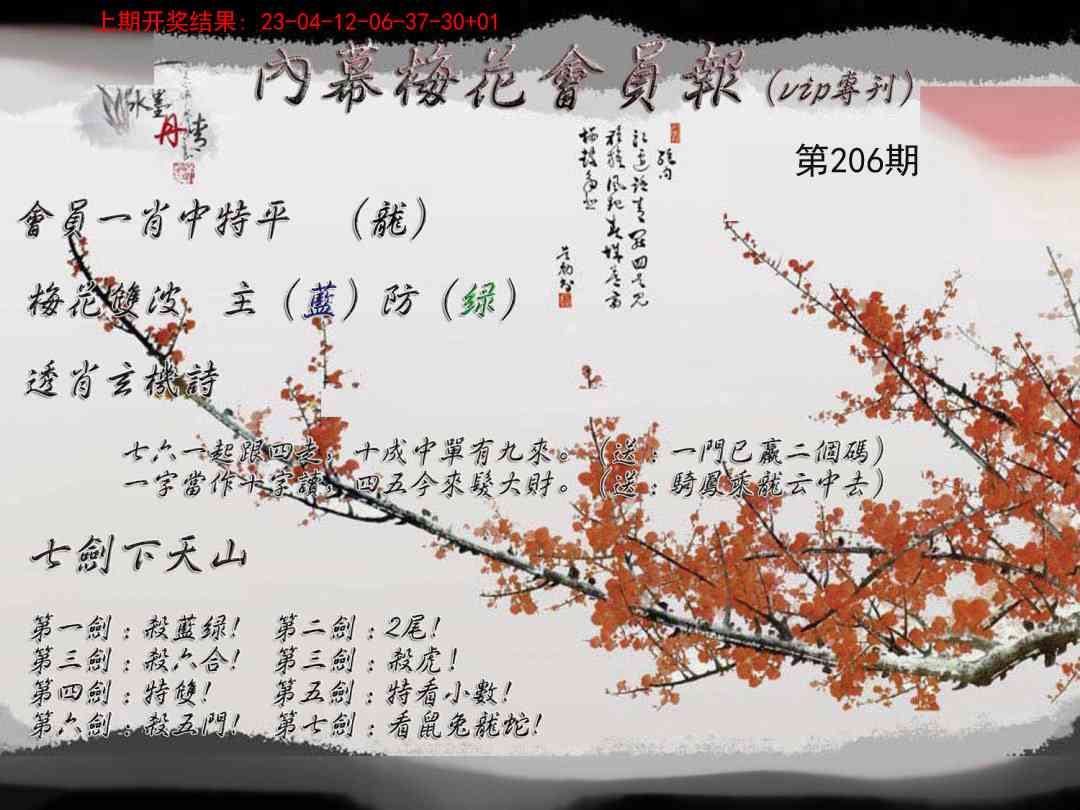 上期开奖结果: 23-04-12-06-37-30+01
內幕梅花會員報(vip專刊)
水墨
丹青
第206期
會員一肖中特平 (龍)
梅花雙波 主(藍)防(绿)
透肖玄機詩
七六一起跟四走,十成中單有九來。(送:一門已贏二個碼)
一字當作十字讀,四五今來發大財。(送:騎鳳乘龍云中去)
七劍下天山
第一劍:殺藍绿! 第二劍:2尾!
第三劍:殺六合! 第三劍:殺虎!
第四劍:特雙! 第五劍:特看小數!
第六劍:殺五門! 第七劍:看鼠兔龍蛇!